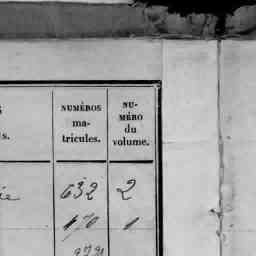 s.
NUMÉROS
ma-
tricules.
NU-
MÉRO
du
volume.
632 2
170 1